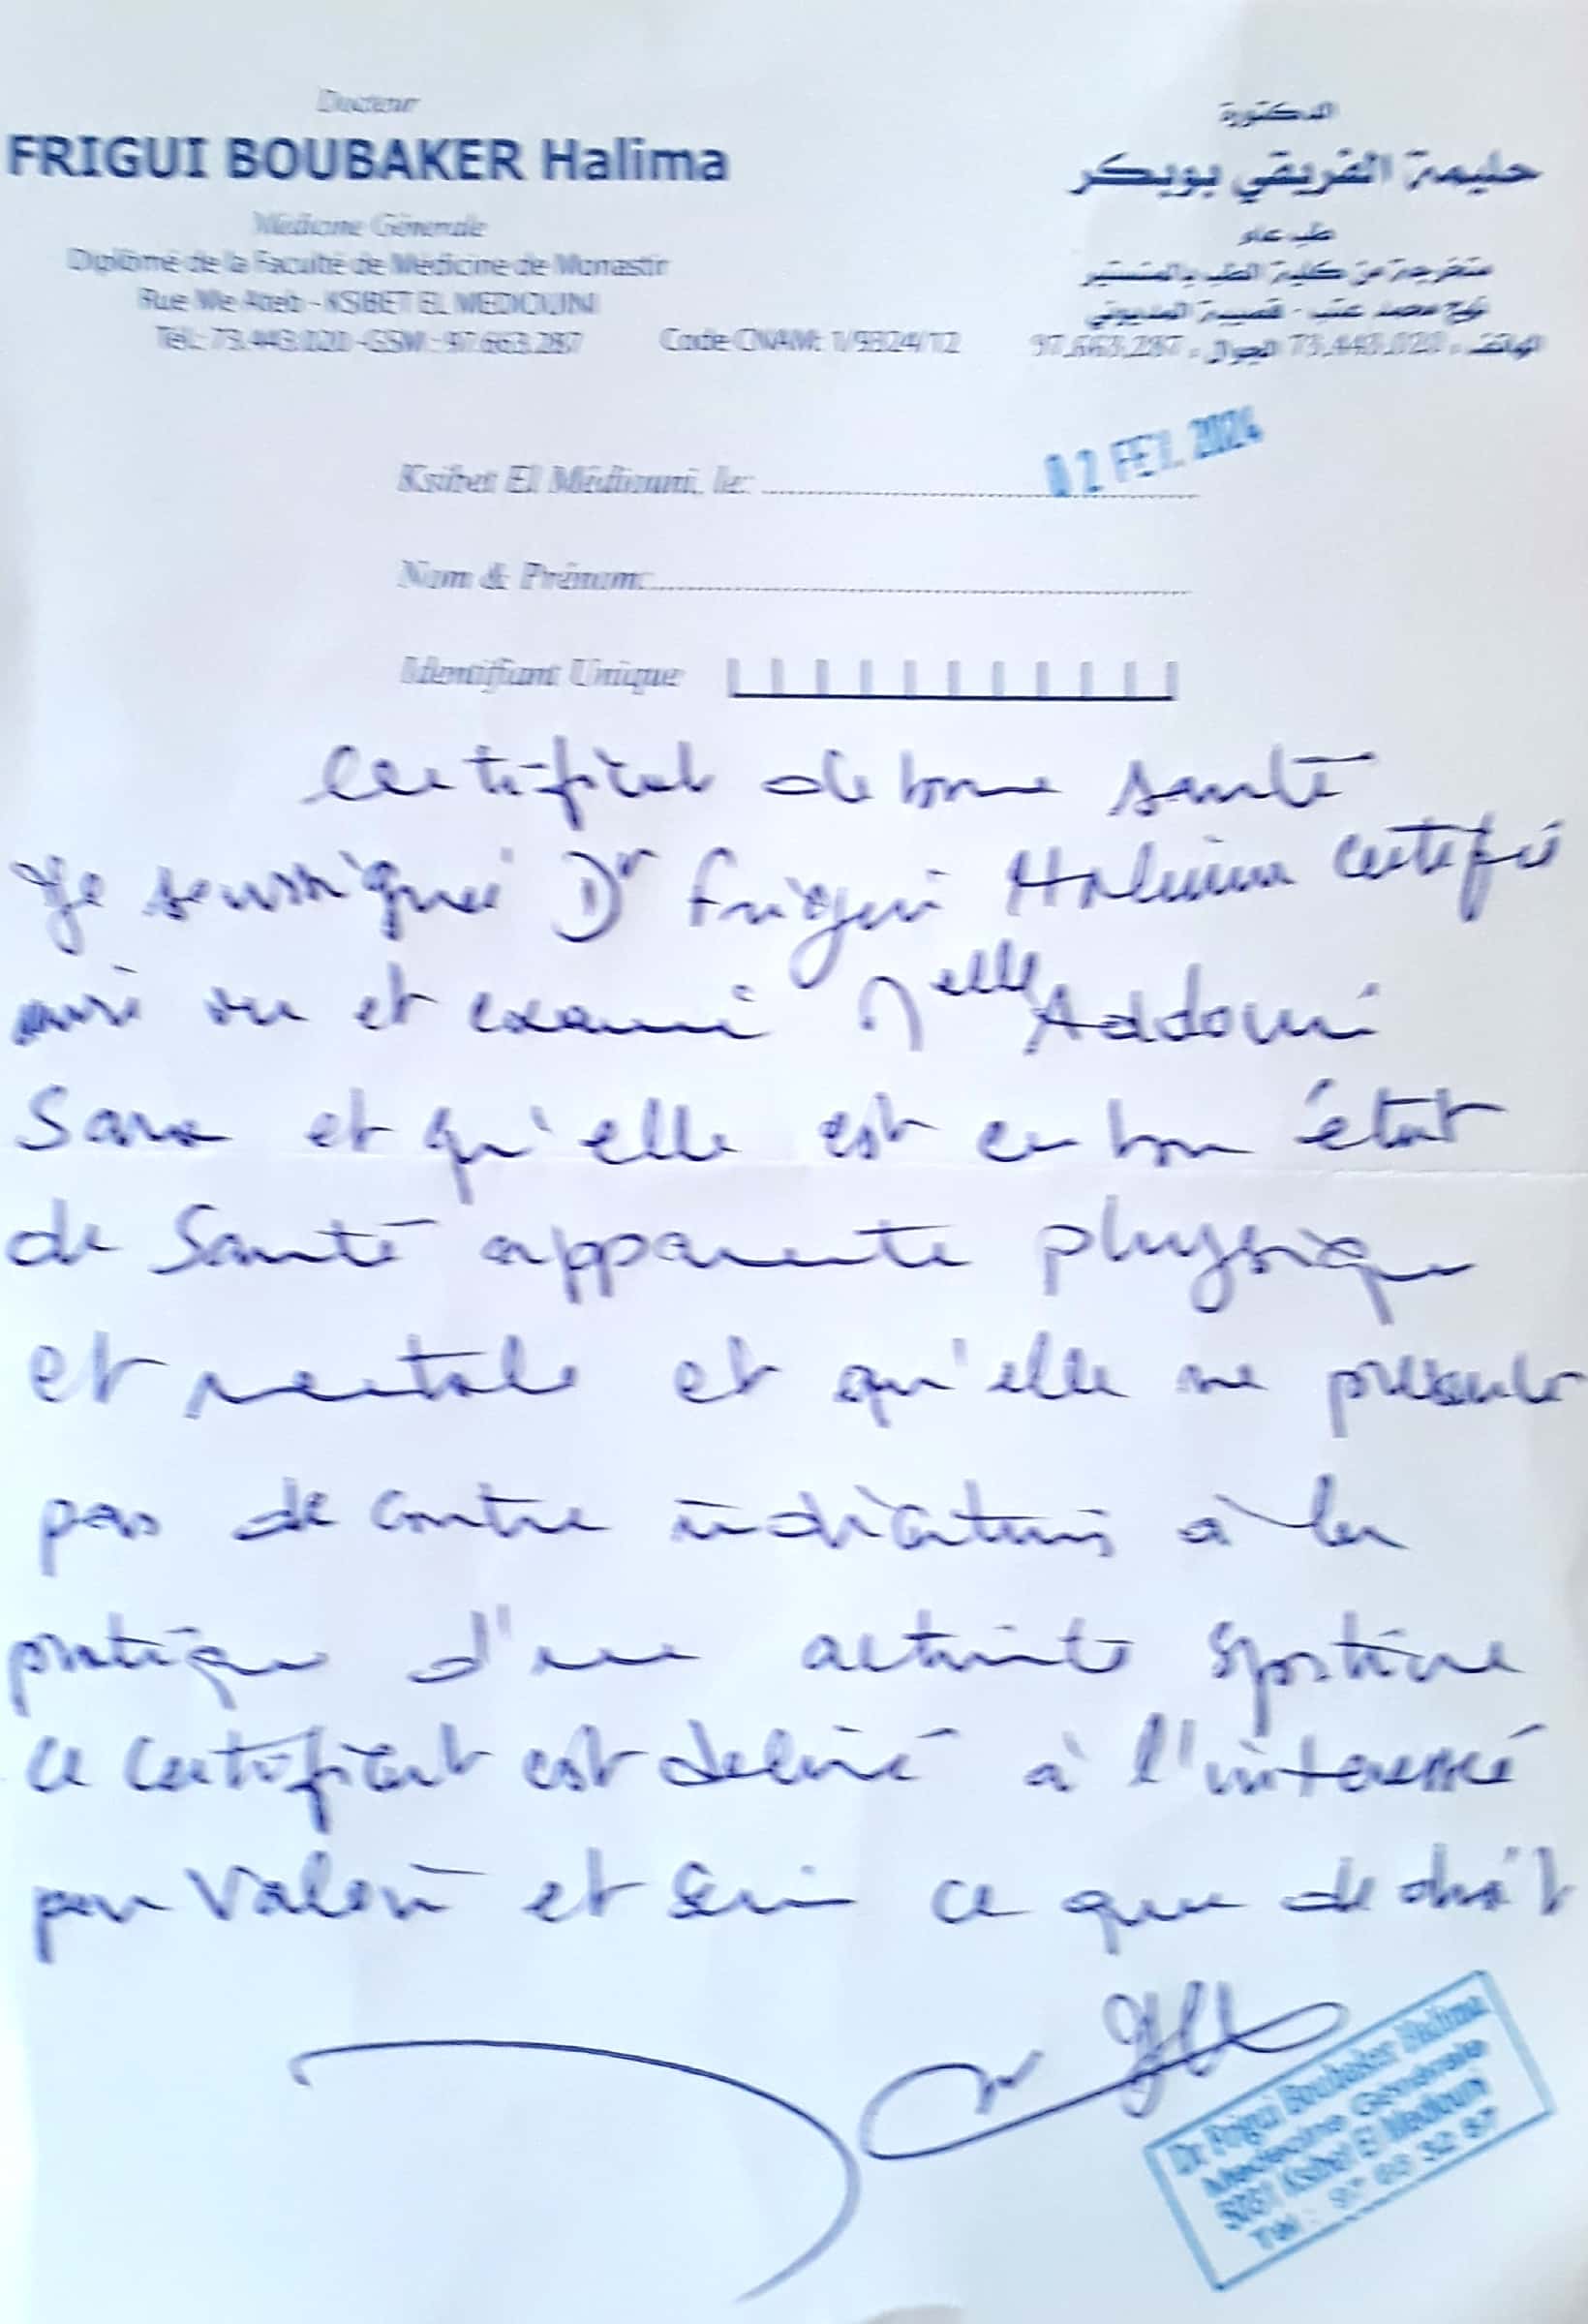 Docteur
FRIGUI BOUBAKER Halima
Médicine Génerale
Diplômé de la Faculté de Médicine de Monastir
Rue Me Ateb - KSIBET EL MEDIOUNI
Tél.: 73.443.020 - GSM : 97.663.287
Code CNAM: 1/9324/12
الدكتورة
حليمة الفريقي بوبكر
طب عام
متخرجة من كلية الطب بالمنستير
نهج محمد عتب - قصيبة المديوني
الهاتف : 73.443.020 الجوال : 97.663.287
Ksibet El Médiouni, le: 02 FEV. 2024
Nom & Prénom:
Identifiant Unique
Certificat de bonne santé
Je soussigné Dr Frigui Halima certifie
avoir vu et examiné Melle Addouni
Sara et qu'elle est en bon état
de Santé apparente physique
et mentale et qu'elle ne présente
pas de contre indications à la
pratique d'une activité sportive
ce certificat est delivré à l'interessé
pour valoir et servir ce que de droit
Dr Frigui Boubaker Halima
Medecine Générale
5031 Ksibet El Mediouni
Tél : 97 66 32 87